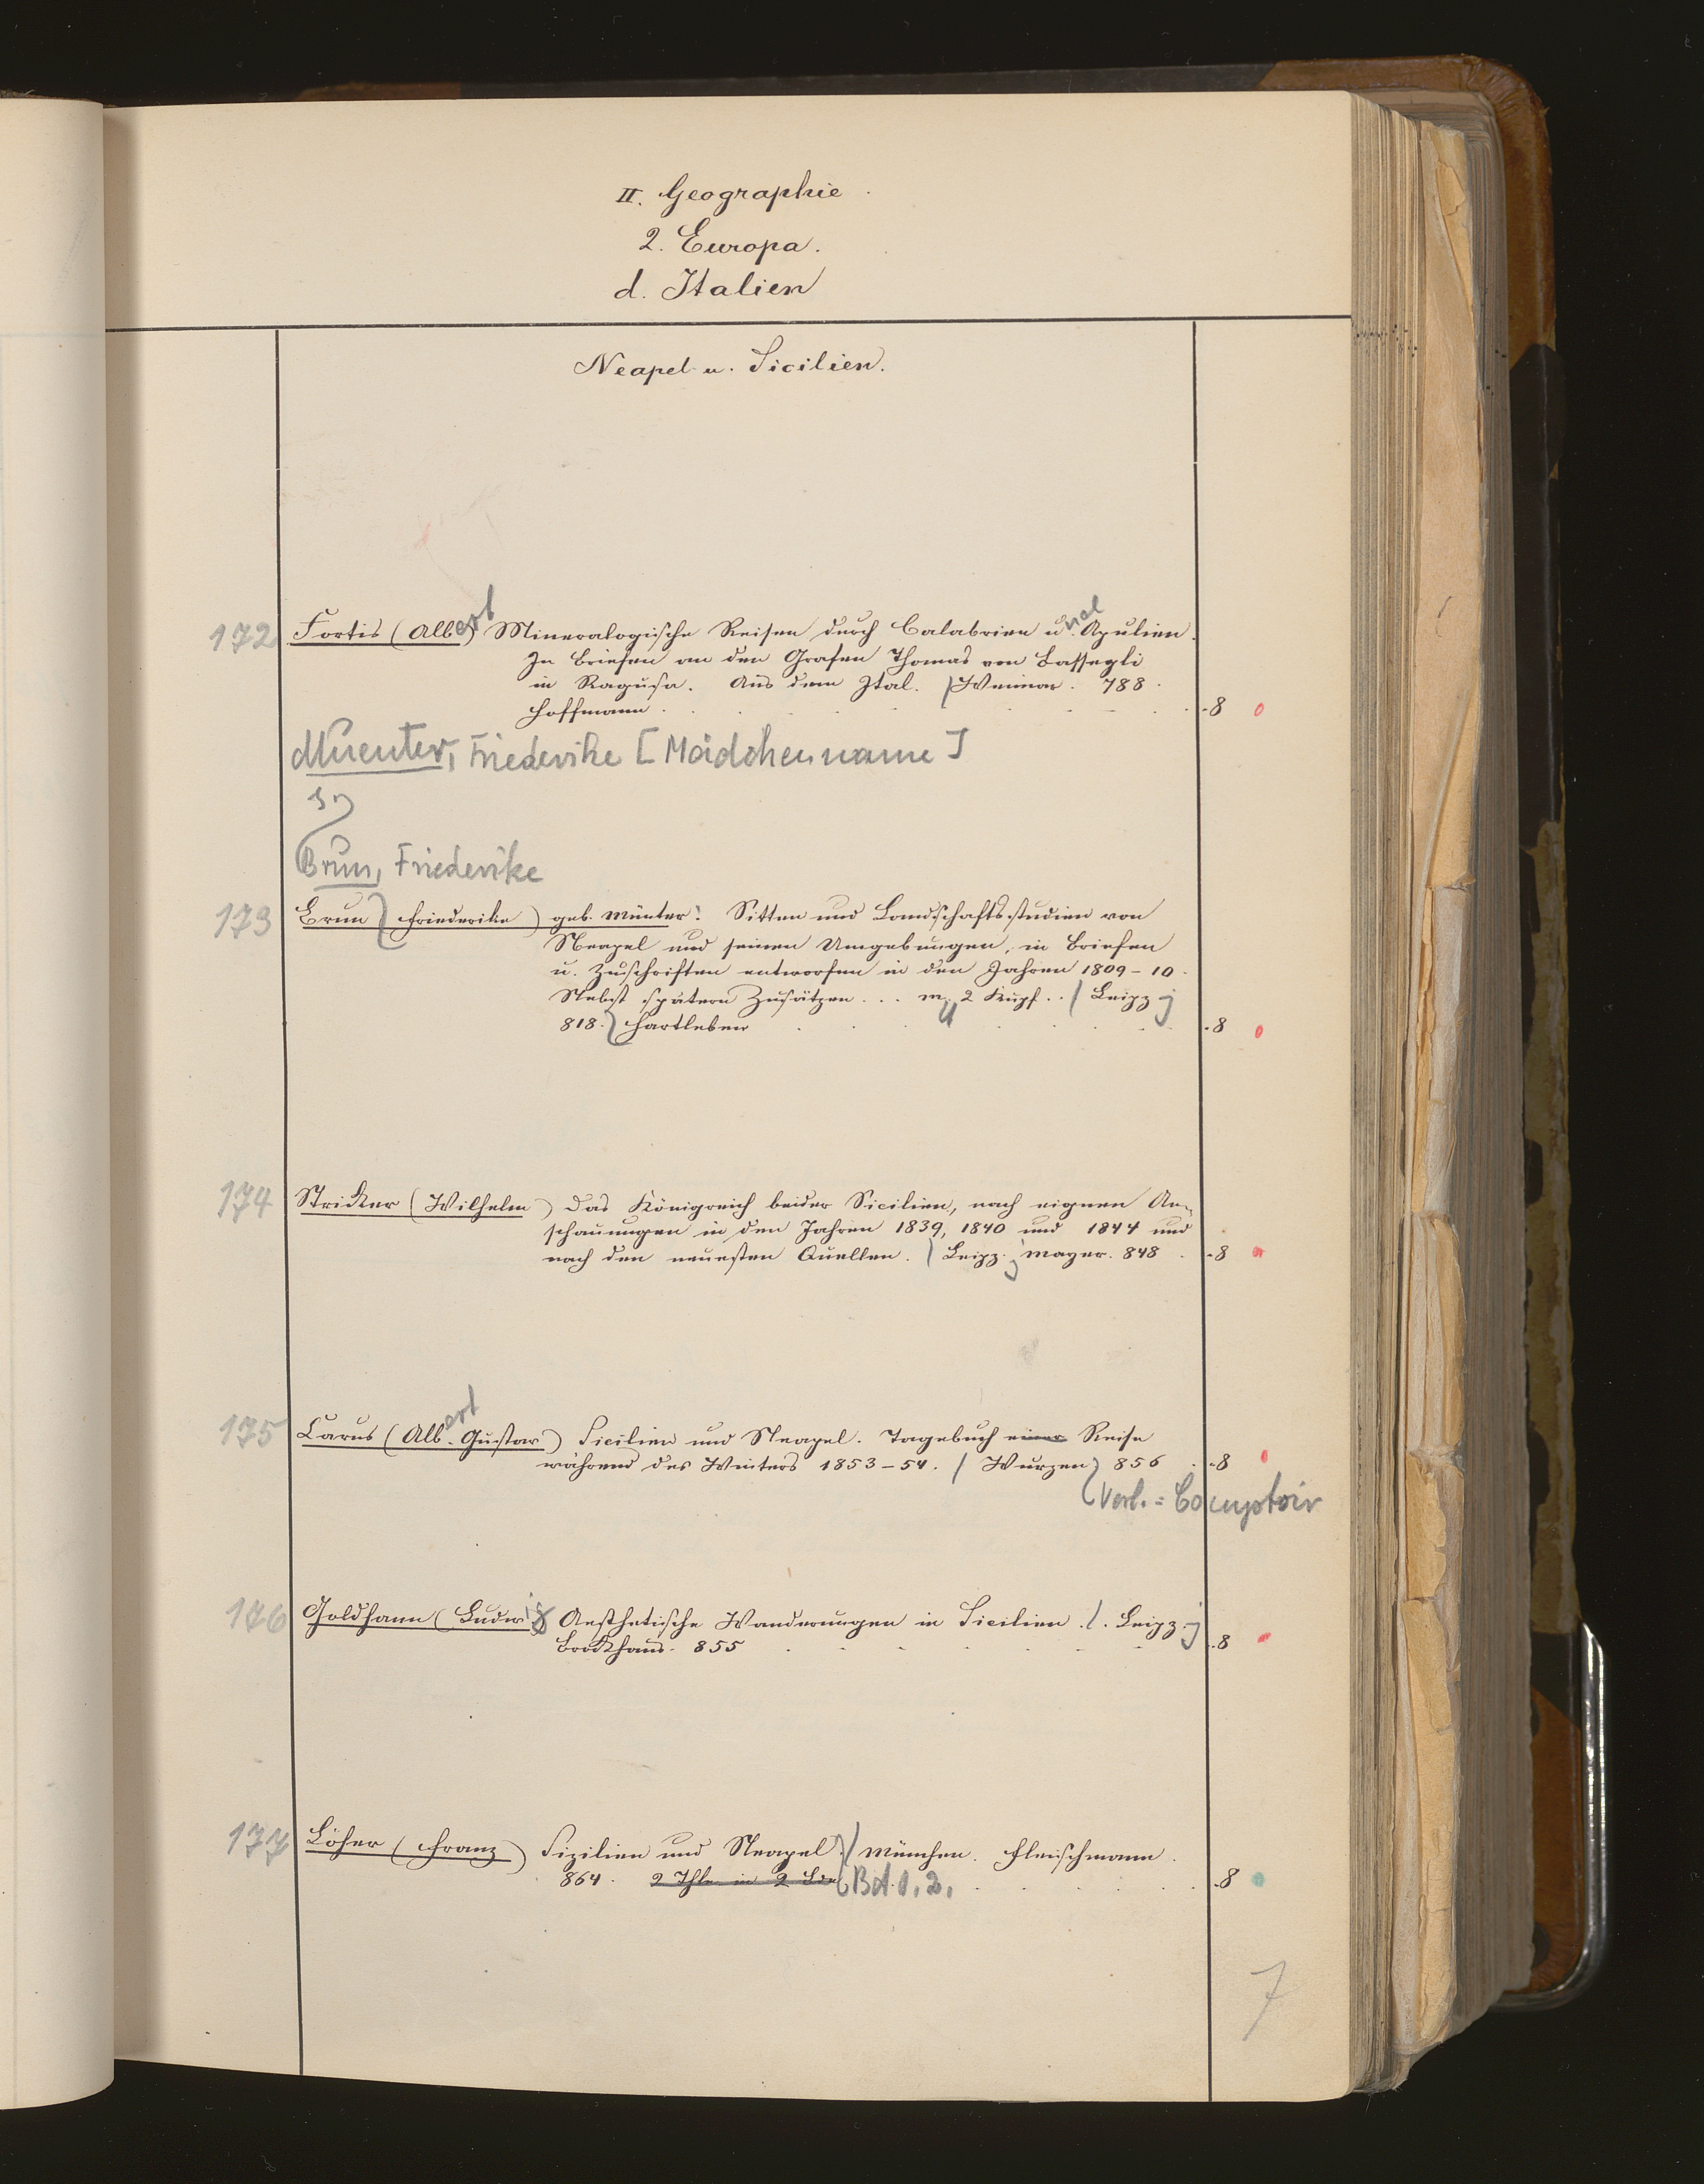 II. Geographie.
2. Europa.
d. Italien
Neapel u. Sicilien.
172 Fortis (Albert) Mineralogische Reisen durch Calabrien und Apulien.
In Briefen an den Grafen Thomas von Bassegli
in Ragusa. Aus dem Ital. / Weimar. 788.
Hoffmann . . . . 8 0
Muenter, Friederike [Mädchenname]
s.
Brun, Friederike
173 Brun (Friederike) geb. Münter: Sitten und Landschaftsstudien von
Neapel und seinen Umgebungen, in Briefen
u. Zuschriften entworfen in den Jahren 1809-10.
Nebst spätern Zusätzen ... m. 2 Kupf.. / Leipz
818. Hartleben . . . . 8 0
174 Stricker (Wilhelm) Das Königreich beider Sicilien, nach eignen An-
schauungen in den Jahren 1839, 1840 und 1844 und
nach den neuesten Quellen. / Leipz. Mayer. 848 . 8
175 Carus (Albert Gustav) Sicilien und Neapel. Tagebuch einer Reise
während des Winters 1853-54. / Wurzen 856 . 8
(Verl.=Comptoir
176 Goldhann (Ludwig) Aesthetische Wanderungen in Sicilien. /. Leipz.
Brockhaus. 855 . . . . 8
177 Löher (Franz) Sizilien und Neapel / München. Fleischmann.
864. 2 Thle in 2 Bde (Bd. 1. 2. . . . . 8
7